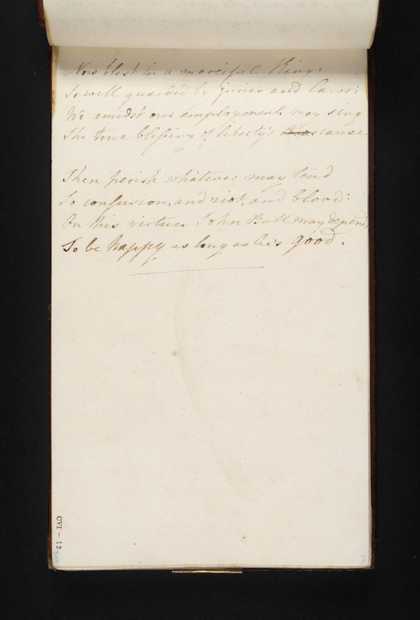 Now blest in a merciful King:
So well guarded by juries and laws:
We amidst our employments may sing
The true blessing of liberty's cause.
Then perish whatever may tend
To confusion, and riot, and blood:
On his virtue John Bull may depend,
To be happy as long as he's good.
CVI — 12